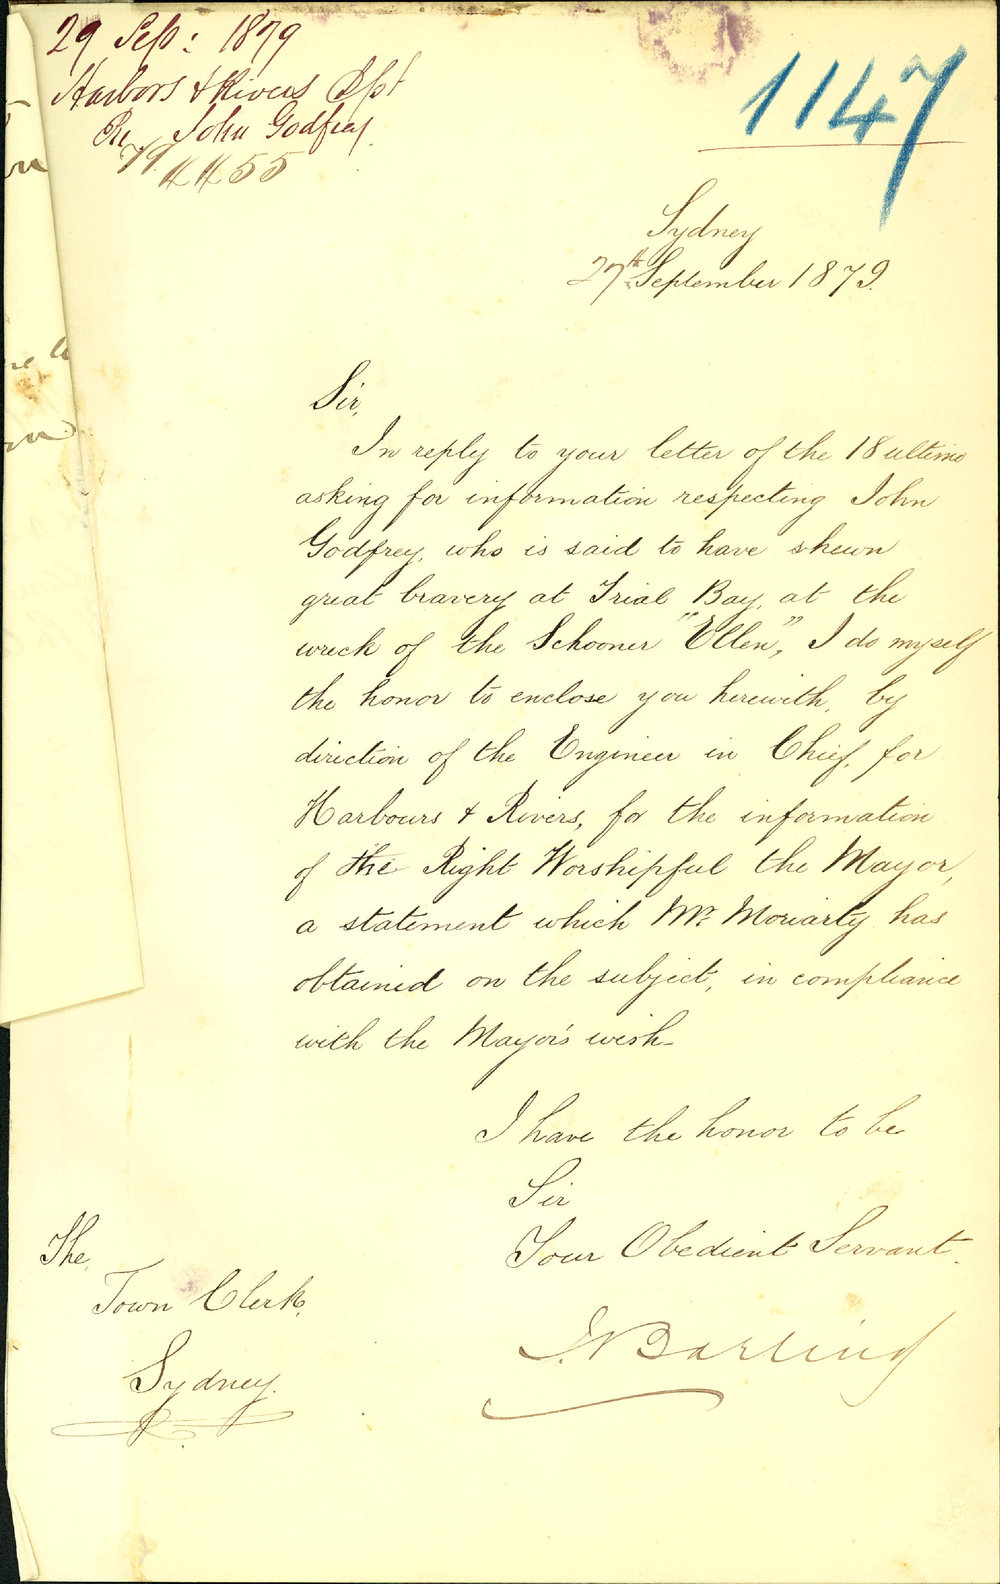 29 Sep: 1879
Harbors & Rivers Dpt
Re John Godfrey.
79.4455
1147
Sydney
27th September 1879.
Sir,
In reply to your letter of the 18 ultimo
asking for information respecting John
Godfrey, who is said to have shewn
great bravery at Trial Bay, at the
wreck of the Schooner "Ellen", I do myself
the honor to enclose you herewith, by
direction of the Engineer in Chief, for
Harbours & Rivers, for the information
of the Right Worshipful the Mayor,
a statement which Mr. Moriarty has
obtained on the subject, in compliance
with the Mayor's wish-
I have the honor to be
Sir
Your Obedient Servant.
The,
Town Clerk,
Sydney.